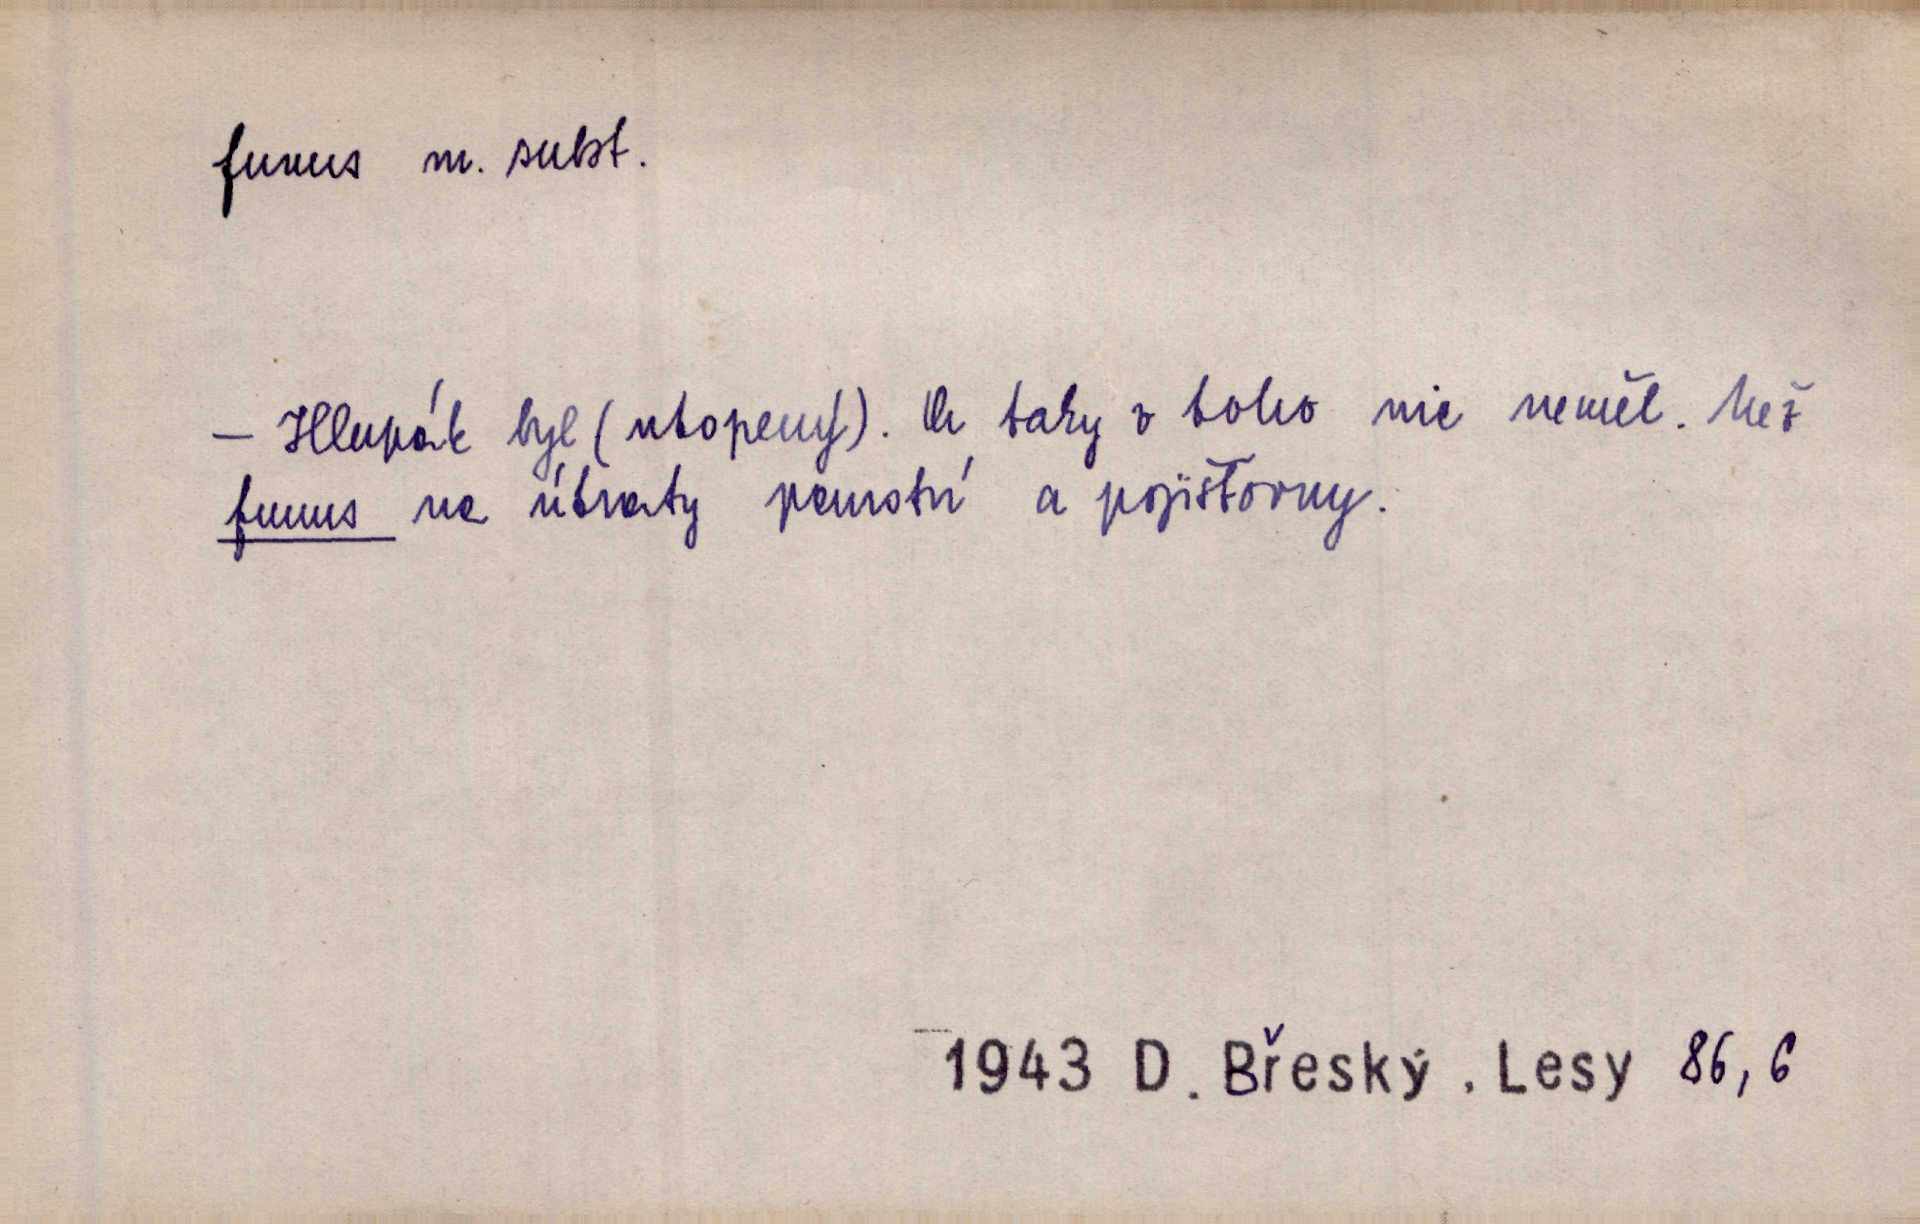 funus m. subst.
– Hlupák byl (utopený). A taky z toho nic neměl. Než
funus na útraty panství a pojišťovny.
1943 D. Břeský. Lesy 86, 6